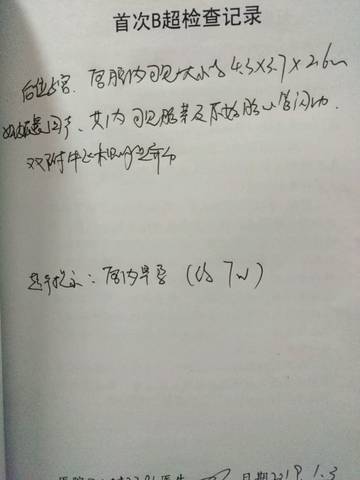 首次B超检查记录
后位子宫. 宫腔内可见大小约4.3×3.7×2.6cm
妊娠囊回声、其内可见胎芽及原始胎心管闪动.
双附件区未见明显异常
超声提示：宫内早孕 (约7w)
日期2019.1.3